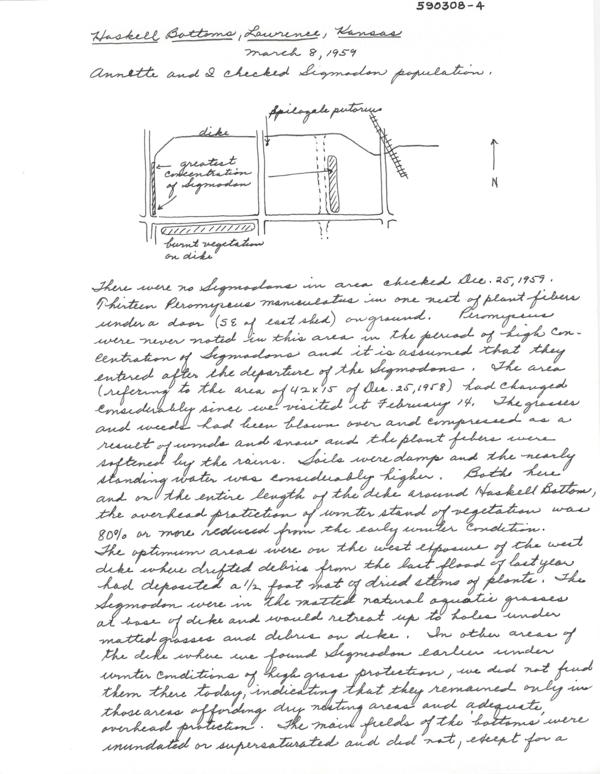 590308-4
Haskell Bottoms, Lawrence, Kansas
March 8, 1959
Annette and I checked Sigmodon population.
Spilogale putorius
dike
greatest
concentration
of Sigmodon
N
burnt vegetation
on dike
There were no Sigmodons in area checked Dec. 25, 1959.
Thirteen Peromyscus maniculatus in one nest of plant fibers
under a door (SE of east shed) on ground. Peromyscus
were never noted in this area in the period of high con-
centration of Sigmodons and it is assumed that they
entered after the departure of the Sigmodons. The area
(refering to the area of 42x15 of Dec. 25, 1958) had changed
considerably since we visited it February 14. The grasses
and weeds had been blown over and compressed as a
result of winds and snow and the plant fibers were
softened by the rains. Soils were damp and the nearly
standing water was considerably higher. Both here
and on the entire length of the dike around Haskell Bottom,
the overhead protection of winter stand of vegetation was
80% or more reduced from the early winter condition.
The optimum areas were on the west exposure of the west
dike where drifted debris from the last flood of last year
had deposited a ½ foot mat of dried stems of plants. The
Sigmodon were in the matted natural aquatic grasses
at base of dike and would retreat up to holes under
matted grasses and debris on dike. In other areas of
the dike where we found Sigmodon earlier under
winter conditions of high grass protection, we did not find
them there today, indicating that they remained only in
those areas affording dry nesting areas and adequate
overhead protection. The main fields of the bottoms were
inundated or supersaturated and did not, except for a